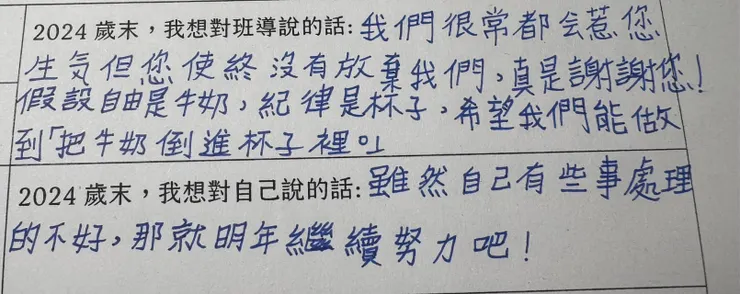 2024 歲末，我想對班導說的話：我們很常都会惹您
生気但您使終沒有放棄我們，真是謝謝您！
假設自由是牛奶，紀律是杯子，希望我們能做
到「把牛奶倒進杯子裡。」
2024 歲末，我想對自己說的話：雖然自己有些事處理
的不好，那就明年繼續努力吧！